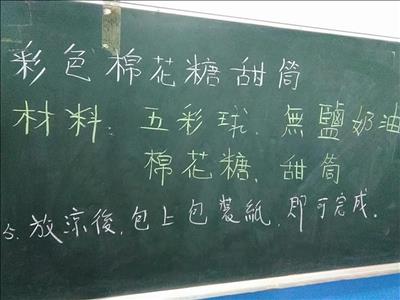 彩色棉花糖甜筒
材料: 五彩球、無鹽奶油
棉花糖、甜筒
5. 放涼後,包上包裝紙,即可完成.